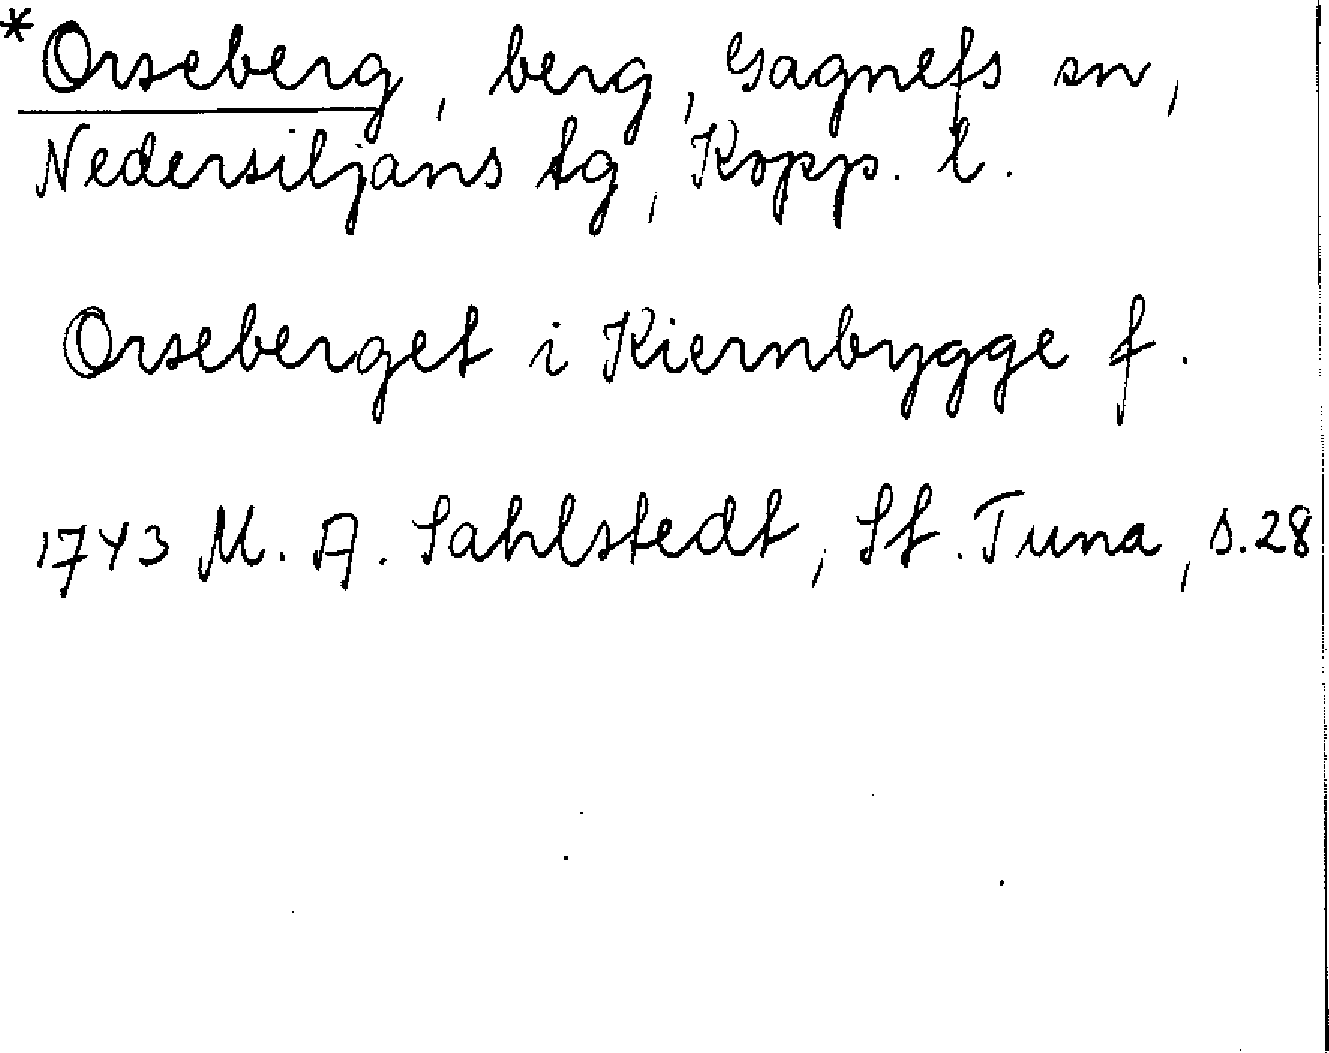 *Orseberg, berg, Gagnefs sn,
Nedersiljans tg, Kopp. l.
Orseberget i Kiernbygge f.
1743 M. A. Sahlstedt, St. Tuna, s. 28